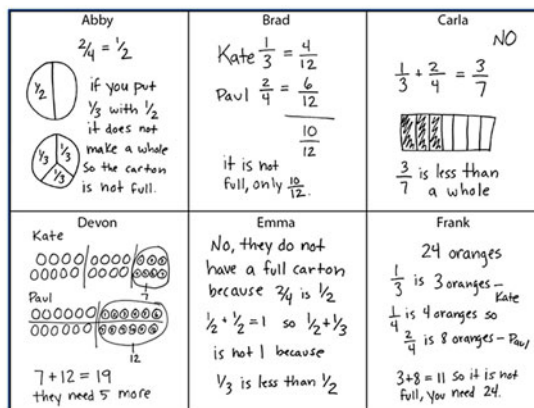 Abby
2/4 = 1/2
1/2
if you put
1/3 with 1/2
it does not
make a whole
so the carton
is not full.
1/3 1/3
1/3
Brad
Kate 1/3 = 4/12
Paul 2/4 = 6/12
10/12
it is not
full, only 10/12.
Carla
NO
1/3 + 2/4 = 3/7
3/7 is less than
a whole
Devon
Kate
7
Paul
12
7 + 12 = 19
they need 5 more
Emma
No, they do not
have a full carton
because 2/4 is 1/2
1/2 + 1/2 = 1 so 1/2 + 1/3
is not 1 because
1/3 is less than 1/2
Frank
24 oranges
1/3 is 3 oranges—
Kate
1/4 is 4 oranges so
2/4 is 8 oranges—Paul
3+8=11 so it is not
full, you need 24.